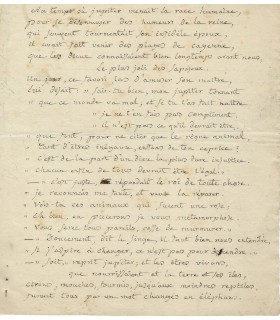 Au temps où Jupiter menait la race humaine,
pour se désennuyer des humeurs de la reine,
qui souvent tourmentait son infidèle époux,
il avait fait venir des plages de Cayenne,
que les dieux connaissaient bien longtemps avant nous,
le plus joli des sapajous.
Un jour, ce favori las d'amuser son maître,
lui disait : » sais-tu bien, mon Jupiter tonnant
» que ce monde va mal, et si tu l'as fait naître
» je ne t'en fais pas compliment.
» il n'est pas ce qu'il devrait être.
» que sont, pour ne citer que le règne animal,
» tant d'êtres inégaux, enfans de ton caprice !
» c'est de la part d'un dieu la plus dure injustice.
» chacun entre de tous devrait être l'égal.
— » c'est juste, répondit le roi de toute chose.
» je reconnais ma faute, et veux la réparer.
» Vois tu ces animaux qui furent une rose,
» Eh bien, en je vous métamorphose.
» Vous serez tous pareils, cesse de murmurer. —
— » Doucement, dit le singe, il faut bien nous entendre,
» Je j'aspire à changer, ce n'est pas pour descendre. —
— » soit, reprit Jupiter ; et les êtres vivans,
que nourrissent et la terre et les airs,
cerfs, mouches, fourmis, jusqu'aux moindres reptiles,
furent tous par un mot changés en éléphans.